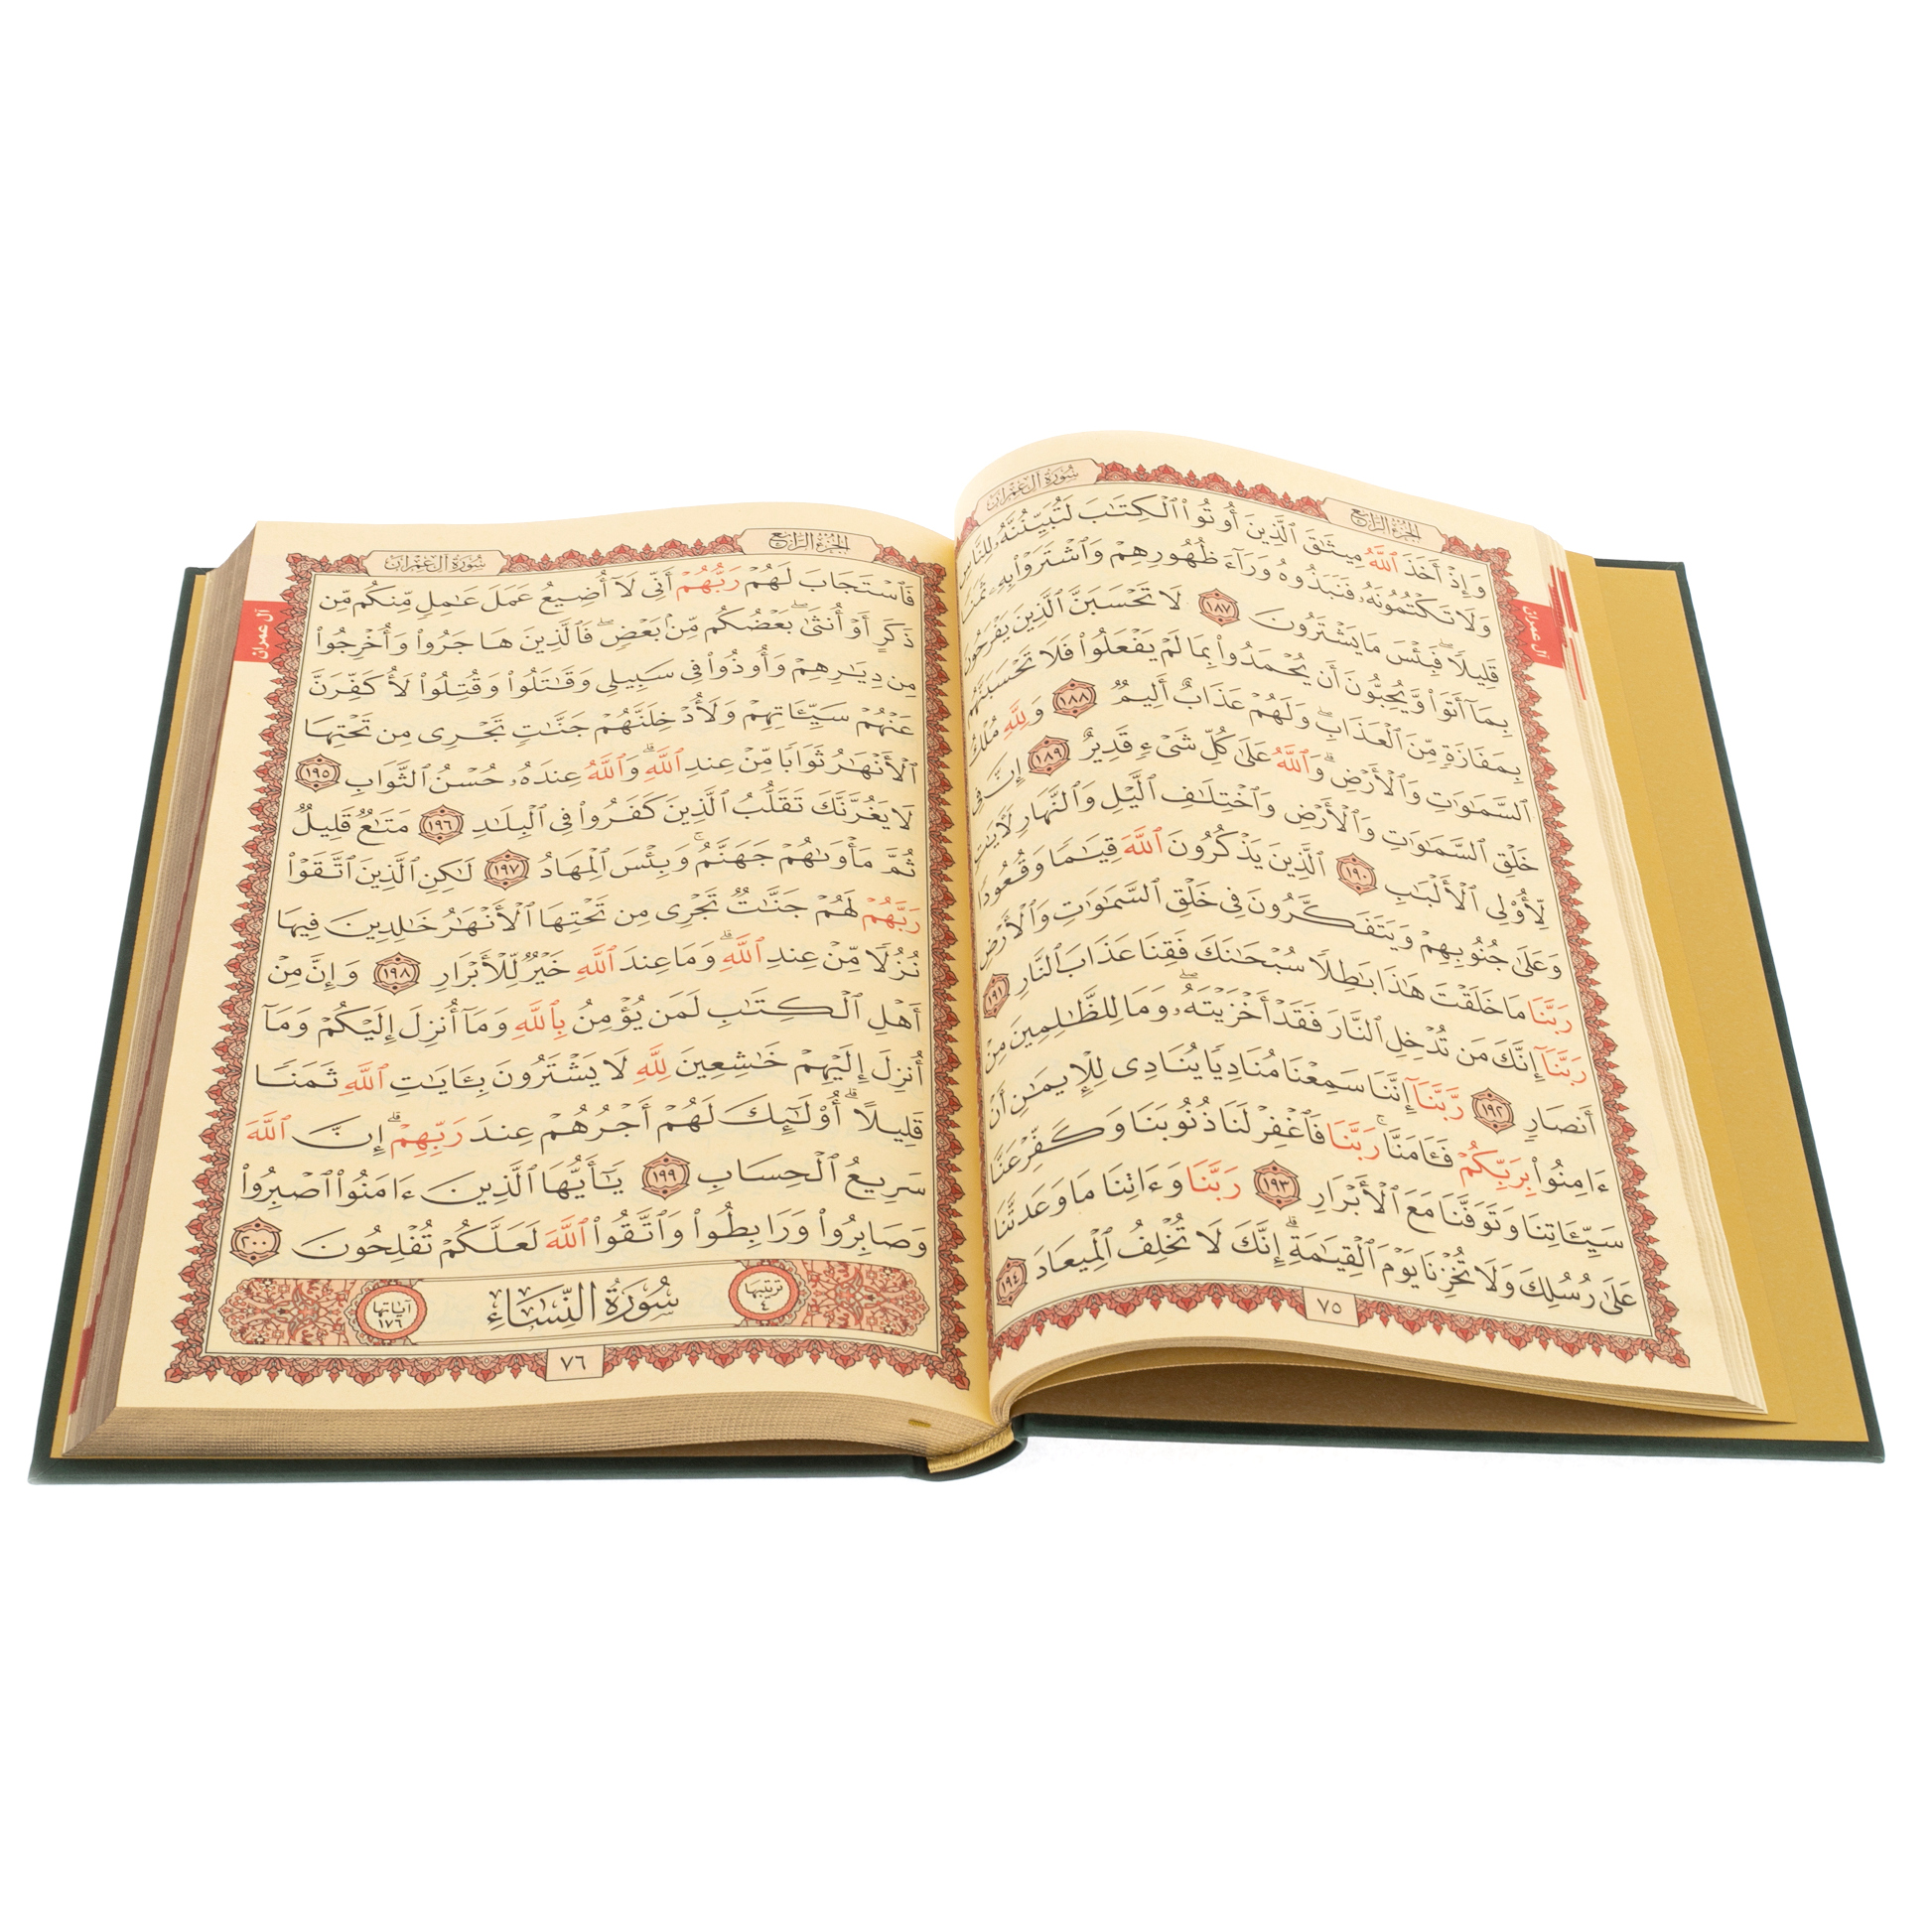 الجزء الرابع
سورة آل عمران
آل عمران
وَإِذْ أَخَذَ ٱللَّهُ مِيثَٰقَ ٱلَّذِينَ أُوتُوا۟ ٱلْكِتَٰبَ لَتُبَيِّنُنَّهُۥ لِلنَّاسِ
وَلَا تَكْتُمُونَهُۥ فَنَبَذُوهُ وَرَآءَ ظُهُورِهِمْ وَٱشْتَرَوْا۟ بِهِۦ ثَمَنًا
قَلِيلًاۖ فَبِئْسَ مَا يَشْتَرُونَ ١٨٧ لَا تَحْسَبَنَّ ٱلَّذِينَ يَفْرَحُونَ
بِمَآ أَتَوا۟ وَّيُحِبُّونَ أَن يُحْمَدُوا۟ بِمَا لَمْ يَفْعَلُوا۟ فَلَا تَحْسَبَنَّهُم
بِمَفَازَةٍ مِّنَ ٱلْعَذَابِۖ وَلَهُمْ عَذَابٌ أَلِيمٌ ١٨٨ وَلِلَّهِ مُلْكُ
ٱلسَّمَٰوَٰتِ وَٱلْأَرْضِۗ وَٱللَّهُ عَلَىٰ كُلِّ شَىْءٍ قَدِيرٌ ١٨٩ إِنَّ فِى
خَلْقِ ٱلسَّمَٰوَٰتِ وَٱلْأَرْضِ وَٱخْتِلَٰفِ ٱلَّيْلِ وَٱلنَّهَارِ لَءَايَٰتٍ
لِّأُو۟لِى ٱلْأَلْبَٰبِ ١٩٠ ٱلَّذِينَ يَذْكُرُونَ ٱللَّهَ قِيَٰمًا وَقُعُودًا
وَعَلَىٰ جُنُوبِهِمْ وَيَتَفَكَّرُونَ فِى خَلْقِ ٱلسَّمَٰوَٰتِ وَٱلْأَرْضِ
رَبَّنَا مَا خَلَقْتَ هَٰذَا بَٰطِلًا سُبْحَٰنَكَ فَقِنَا عَذَابَ ٱلنَّارِ ١٩١
رَبَّنَآ إِنَّكَ مَن تُدْخِلِ ٱلنَّارَ فَقَدْ أَخْزَيْتَهُۥۖ وَمَا لِلظَّٰلِمِينَ مِنْ
أَنصَارٍ ١٩٢ رَّبَّنَآ إِنَّنَا سَمِعْنَا مُنَادِيًا يُنَادِى لِلْإِيمَٰنِ أَنْ
ءَامِنُوا۟ بِرَبِّكُمْ فَـَٔامَنَّاۚ رَبَّنَا فَٱغْفِرْ لَنَا ذُنُوبَنَا وَكَفِّرْ عَنَّا
سَيِّـَٔاتِنَا وَتَوَفَّنَا مَعَ ٱلْأَبْرَارِ ١٩٣ رَبَّنَا وَءَاتِنَا مَا وَعَدتَّنَا
عَلَىٰ رُسُلِكَ وَلَا تُخْزِنَا يَوْمَ ٱلْقِيَٰمَةِۗ إِنَّكَ لَا تُخْلِفُ ٱلْمِيعَادَ ١٩٤
٧٥
الجزء الرابع
سورة آل عمران
آل عمران
فَٱسْتَجَابَ لَهُمْ رَبُّهُمْ أَنِّى لَآ أُضِيعُ عَمَلَ عَٰمِلٍ مِّنكُم مِّن
ذَكَرٍ أَوْ أُنثَىٰۖ بَعْضُكُم مِّنۢ بَعْضٍۖ فَٱلَّذِينَ هَاجَرُوا۟ وَأُخْرِجُوا۟
مِن دِيَٰرِهِمْ وَأُوذُوا۟ فِى سَبِيلِى وَقَٰتَلُوا۟ وَقُتِلُوا۟ لَأُكَفِّرَنَّ
عَنْهُمْ سَيِّـَٔاتِهِمْ وَلَأُدْخِلَنَّهُمْ جَنَّٰتٍ تَجْرِى مِن تَحْتِهَا
ٱلْأَنْهَٰرُ ثَوَابًا مِّنْ عِندِ ٱللَّهِۗ وَٱللَّهُ عِندَهُۥ حُسْنُ ٱلثَّوَابِ ١٩٥
لَا يَغُرَّنَّكَ تَقَلُّبُ ٱلَّذِينَ كَفَرُوا۟ فِى ٱلْبِلَٰدِ ١٩٦ مَتَٰعٌ قَلِيلٌ
ثُمَّ مَأْوَىٰهُمْ جَهَنَّمُۚ وَبِئْسَ ٱلْمِهَادُ ١٩٧ لَٰكِنِ ٱلَّذِينَ ٱتَّقَوْا۟
رَبَّهُمْ لَهُمْ جَنَّٰتٌ تَجْرِى مِن تَحْتِهَا ٱلْأَنْهَٰرُ خَٰلِدِينَ فِيهَا
نُزُلًا مِّنْ عِندِ ٱللَّهِۗ وَمَا عِندَ ٱللَّهِ خَيْرٌ لِّلْأَبْرَارِ ١٩٨ وَإِنَّ مِنْ
أَهْلِ ٱلْكِتَٰبِ لَمَن يُؤْمِنُ بِٱللَّهِ وَمَآ أُنزِلَ إِلَيْكُمْ وَمَآ
أُنزِلَ إِلَيْهِمْ خَٰشِعِينَ لِلَّهِ لَا يَشْتَرُونَ بِـَٔايَٰتِ ٱللَّهِ ثَمَنًا
قَلِيلًاۗ أُو۟لَٰٓئِكَ لَهُمْ أَجْرُهُمْ عِندَ رَبِّهِمْۗ إِنَّ ٱللَّهَ
سَرِيعُ ٱلْحِسَابِ ١٩٩ يَٰٓأَيُّهَا ٱلَّذِينَ ءَامَنُوا۟ ٱصْبِرُوا۟
وَصَابِرُوا۟ وَرَابِطُوا۟ وَٱتَّقُوا۟ ٱللَّهَ لَعَلَّكُمْ تُفْلِحُونَ ٢٠٠
ترتيبها ٤ سُورَةُ النِّسَاءِ آياتها ١٧٦
٧٦